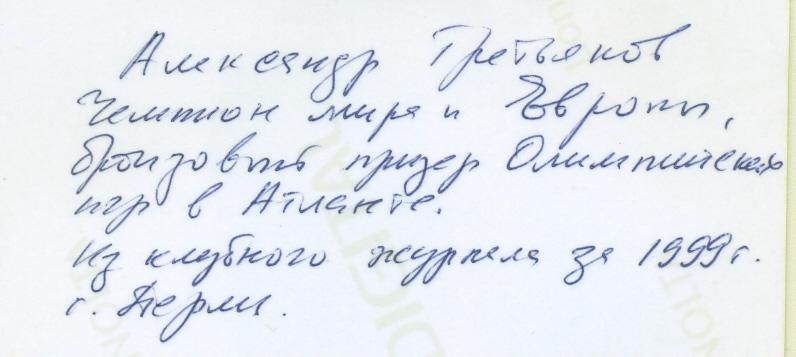 Александр Третьяков
Чемпион мира и Европы,
бронзовый призер Олимпийских
игр в Атланте.
Из клубного журнала за 1999 г.
г. Перми.
DIGITAL